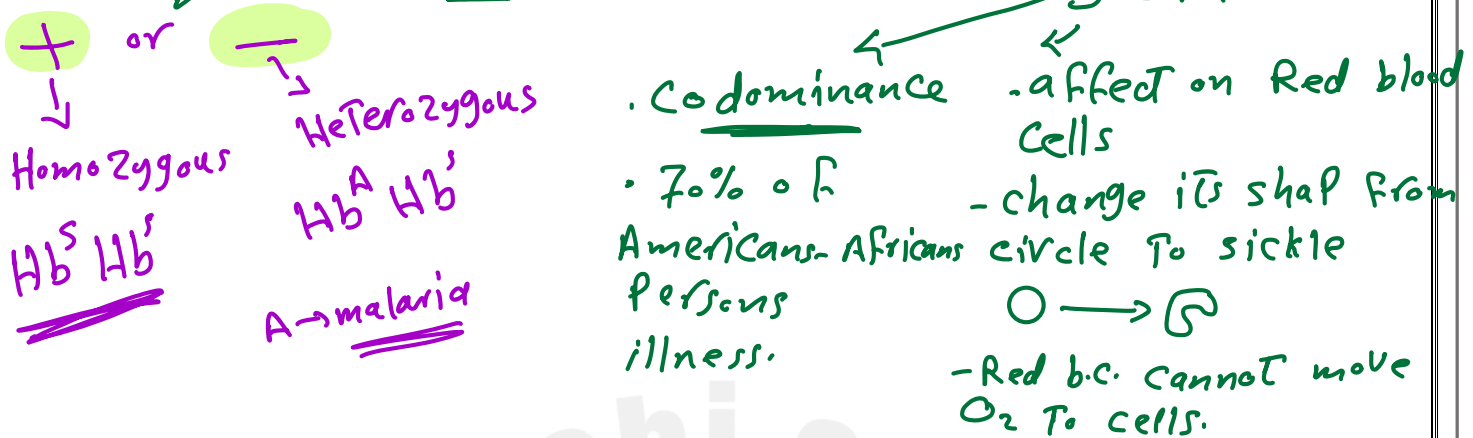 + or —
Heterozygous
Homozygous
Hb^A Hb^s
Hb^S Hb^s
A→malaria
. Codominance
. 70% of
Americans-Africans
Persons
illness.
-affect on Red blood
cells
- change its shap from
circle To sickle
-Red b.c. cannot move
O2 To cells.